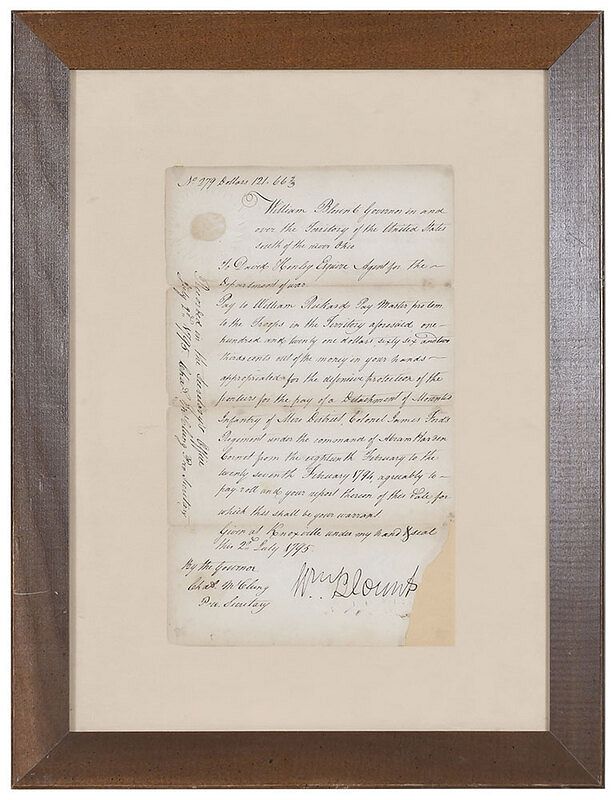 No 279 Dollars 121. 66 2/3
William Blount Governor in and
over the Territory of the United States
south of the river Ohio
To David Henley Esquire Agent for the
Department of war
Pay to William Rickard Pay Master protem
to the Troops in the Territory aforesaid one
hundred and twenty one dollars, sixty six and two
thirds cents out of the money in your hands
appropriated for the defensive protection of the
frontiers for the pay of a Detachment of Mounted
Infantry of Mero District, Colonel James Fords
Regiment under the command of Abram
Cornet from the eighteenth February to the
twenty seventh February 1794 agreeably to
pay roll and your report thereon of this date for
which this shall be your warrant.
Given at Knoxville under my hand & seal
this 2d July 1795
By the Governor
Chas. McClung
Pr. Secretary
Wm. Blount
Recorded in the Secretary's Office
July 2d 1795 Chas. McClung Pr. Secretary